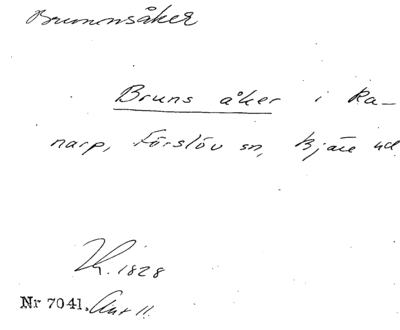 Brunnsåker
Bruns åker i Ra-
narp, Förslöv sn, Bjäre hd
1828
Nr 7041. 11.